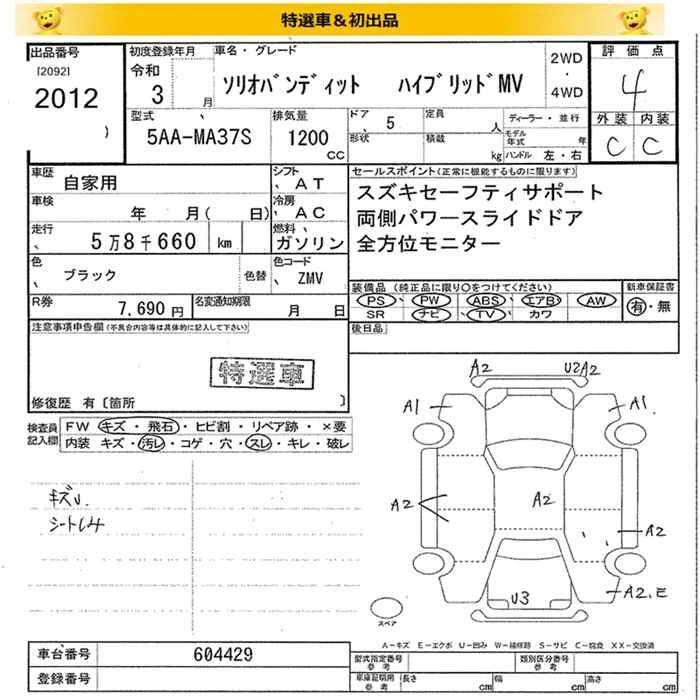 特選車＆初出品
出品番号
[2092]
2012
初度登録年月
令和
3 月
車名・グレード
ソリオバンディット ハイブリッドMV
2WD
・
4WD
評価点
4
外装 内装
C C
型式
5AA-MA37S
排気量
1200
CC
ドア
5
定員
人
形状
積載
kg
ディーラー・並行
モデル年式 年
ハンドル 左・右
車歴
自家用
シフト
AT
車検
年 月( 日)
冷房
AC
走行
5万8千660 km
燃料
ガソリン
色
ブラック
色替
色コード
ZMV
R券
7,690円
名変通知期限
月 日
セールスポイント(正常に機能するものに限ります)
スズキセーフティサポート
両側パワースライドドア
全方位モニター
装備品 (純正品に限り○をつけてください)
PS PW ABS エアB AW
SR ナビ TV カワ
新車保証書
有・無
後日品
注意事項申告欄(不具合内容等は具体的に記入して下さい)
特選車
修復歴 有〔箇所 〕
検査員記入欄
FW キズ・飛石・ヒビ割・リペア跡・×要
内装 キズ・汚レ・コゲ・穴・スレ・キレ・破レ
キズU.
シートシミ
A2 U2A2
A1 A1
A2 A2 A2
U3 A2.E
スペア
A-キズ E-エクボ U-凹み W-補修跡 S-サビ C-腐食 XX-交換済
車台番号 604429
登録番号
型式指定番号 参考
類別区分番号 参考
車庫証明用 参考
長さ cm 幅 cm 高さ cm